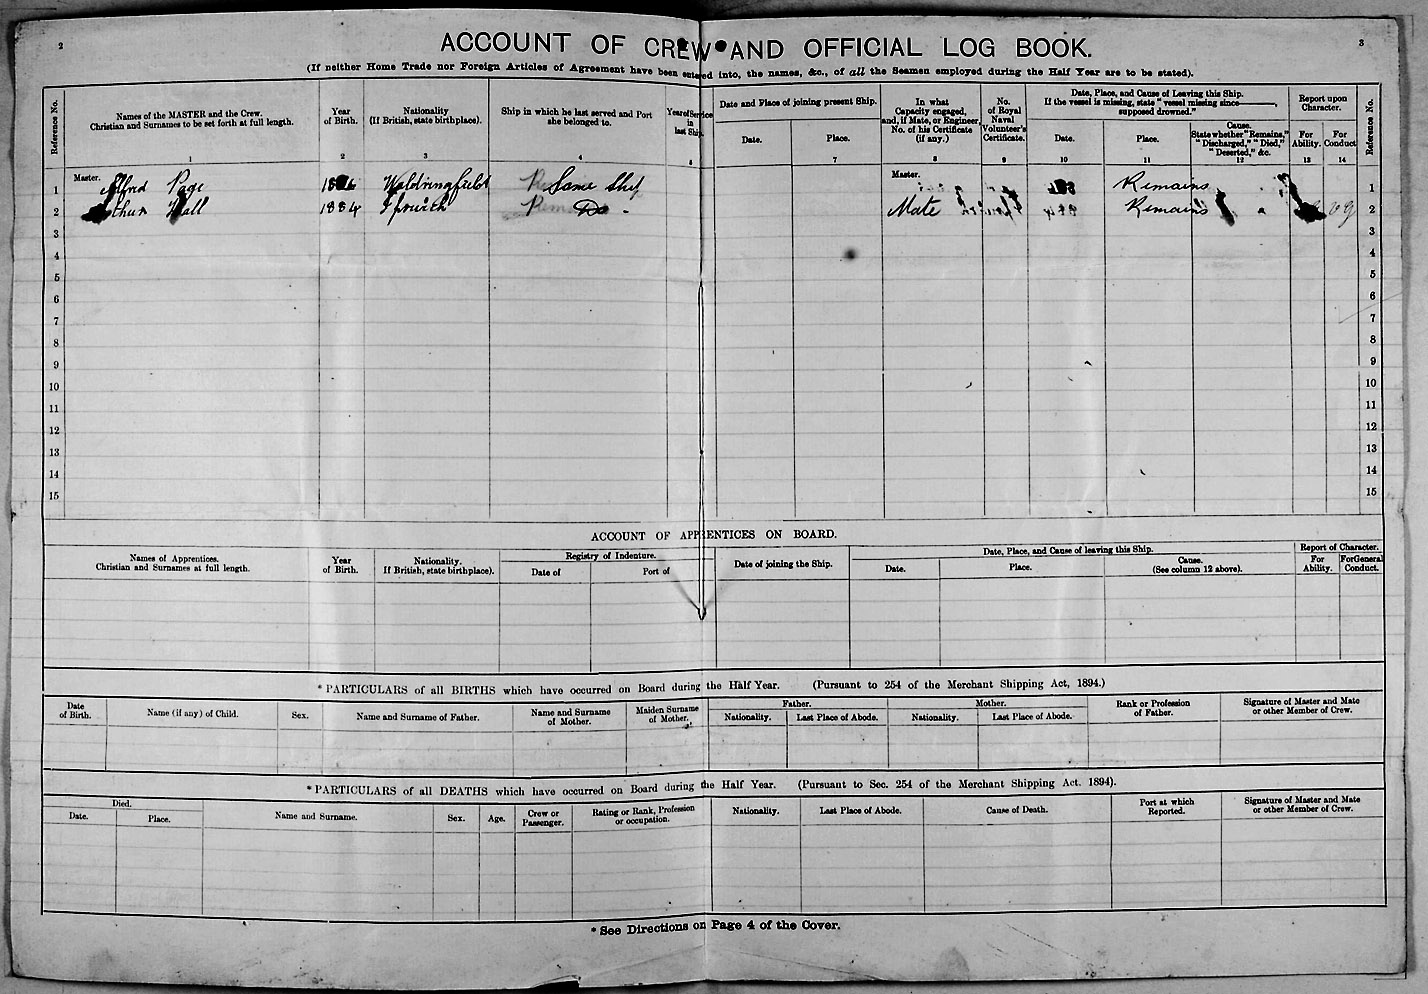 2
3
ACCOUNT OF CREW AND OFFICIAL LOG BOOK.
(If neither Home Trade nor Foreign Articles of Agreement have been entered into, the names, &c., of all the Seamen employed during the Half Year are to be stated).
Reference No.
Names of the MASTER and the Crew.
Christian and Surnames to be set forth at full length.
1
Year
of Birth.
2
Nationality
(If British, state birthplace).
3
Ship in which he last served and Port
she belonged to.
4
Year of Service
in
last Ship.
5
Date and Place of joining present Ship.
Date.
Place.
7
In what
Capacity engaged,
and, if Mate, or Engineer,
No. of his Certificate
(if any.)
8
No.
of Royal
Naval
Volunteer's
Certificate.
9
Date, Place, and Cause of Leaving this Ship.
If the vessel is missing, state "vessel missing since ———,
supposed drowned."
Date.
10
Place.
11
Cause.
State whether "Remains,"
"Discharged," "Died,"
"Deserted," &c.
12
Report upon
Character.
For
Ability.
13
For
Conduct
14
Reference No.
1 Master. Alfred Page Waldringfield Same Ship Master. Remains 1
2 Arthur Hall 1884 Ipswich Do - Mate Remains VG 2
3 3
4 4
5 5
6 6
7 7
8 8
9 9
10 10
11 11
12 12
13 13
14 14
15 15
ACCOUNT OF APPRENTICES ON BOARD.
Names of Apprentices.
Christian and Surnames at full length.
Year
of Birth.
Nationality.
If British, state birthplace).
Registry of Indenture.
Date of
Port of
Date of joining the Ship.
Date, Place, and Cause of leaving this Ship.
Date.
Place.
Cause.
(See column 12 above).
Report of Character.
For
Ability.
For General
Conduct.
*PARTICULARS of all BIRTHS which have occurred on Board during the Half Year. (Pursuant to 254 of the Merchant Shipping Act, 1894.)
Date
of Birth.
Name (if any) of Child.
Sex.
Name and Surname of Father.
Name and Surname
of Mother.
Maiden Surname
of Mother.
Father.
Nationality.
Last Place of Abode.
Mother.
Nationality.
Last Place of Abode.
Rank or Profession
of Father.
Signature of Master and Mate
or other Member of Crew.
*PARTICULARS of all DEATHS which have occurred on Board during the Half Year. (Pursuant to Sec. 254 of the Merchant Shipping Act. 1894).
Died.
Date.
Place.
Name and Surname.
Sex.
Age.
Crew or
Passenger.
Rating or Rank, Profession
or occupation.
Nationality.
Last Place of Abode.
Cause of Death.
Port at which
Reported.
Signature of Master and Mate
or other Member of Crew.
* See Directions on Page 4 of the Cover.